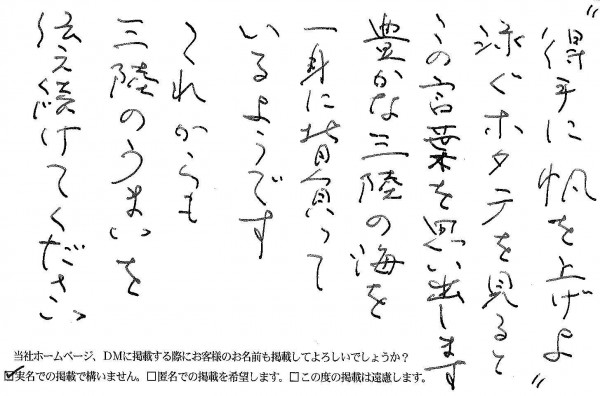 “得手に帆を上げよ”
泳ぐホタテを見ると
この言葉を思い出します
豊かな三陸の海を
一身に背負って
いるようです
これからも
三陸のうまいを
伝え続けてください
当社ホームページ、DMに掲載する際にお客様のお名前も掲載してよろしいでしょうか？
☑実名での掲載で構いません。□匿名での掲載を希望します。□この度の掲載は遠慮します。